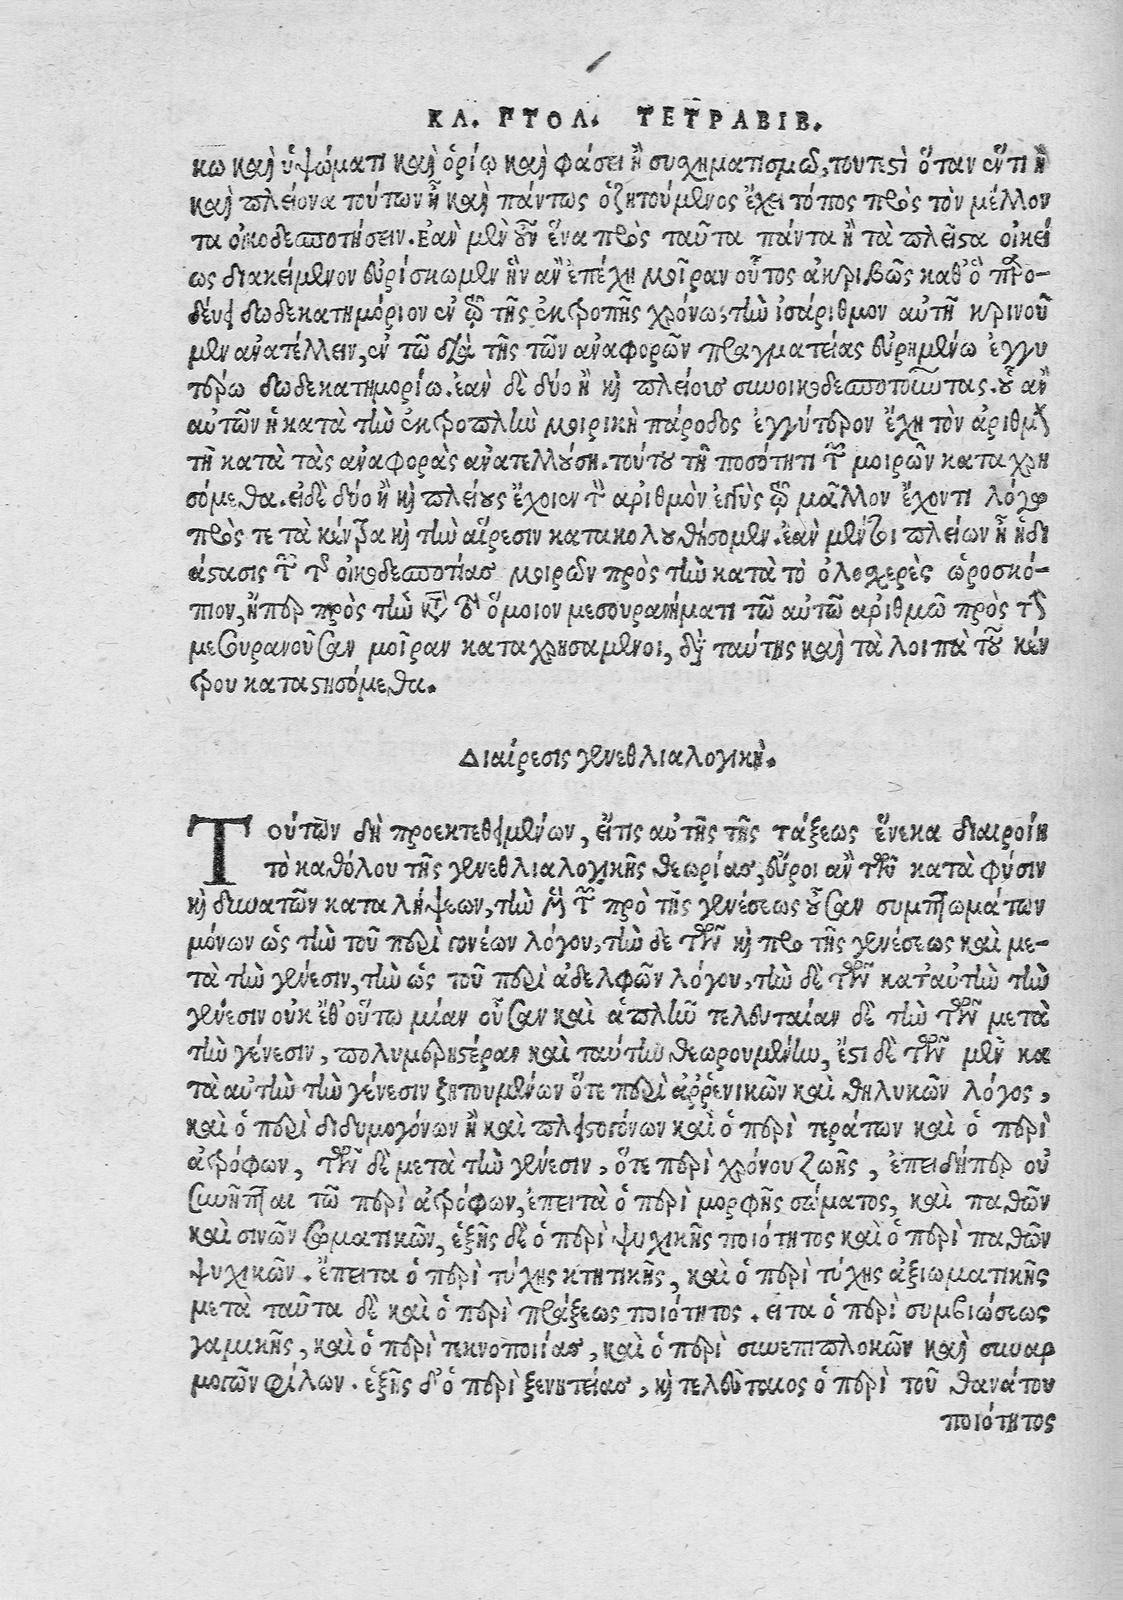 ΚΛ. ΠΤΟΛ. ΤΕΤΡΑΒΙΒ.
κω καὶ ὑψώματι καὶ ὁρίῳ καὶ φάσει ἢ συσχηματισμῶ, τουτεστὶ ὅταν ἕν τι ἢ
καὶ πλείονα τούτων ἢ καὶ πάντως ὁ ζητούμενος ἔχει τόπος πρὸς τὸν μέλλον
τα οἰκοδεσποτήσειν. Εὰν μὲν οὖν ἕνα πρὸς ταῦτα πάντα ἢ τὰ πλεῖστα οἰκεί
ως διακείμενον εὑρίσκωμεν ἣν ἂν ἐπέχῃ μοῖραν οὗτος ἀκριβῶς καθ' ὃ προ-
δεύει δωδεκατημόριον ἐν τῷ τῆς ἐκτροπῆς χρόνω, τὴν ἰσάριθμον αὐτῇ κρινοῦ
μεν ἀνατέλλειν, ἐν τῶ διὰ τῆς τῶν ἀναφορῶν πραγματείας εὑρημένω ἐγγυ
τέρω δωδεκατημορίω. ἐὰν δὲ δύο ἢ καὶ πλείους συνοικοδεσποτοῦντας. οὗ ἂν
αὐτῶν ἡ κατὰ τὴν ἐκτροπὴν μοιρικὴ πάροδος ἐγγύτερον ἔχῃ τὸν ἀριθμὸν
τῆ κατὰ τὰς ἀναφορὰς ἀνατελλούσῃ. τούτου τῆ ποσότητι τῶν μοιρῶν καταχρη
σόμεθα. εἰ δὲ δύο ἢ καὶ πλείους ἔχοιεν τὸν ἀριθμὸν ἐγγὺς τῷ μᾶλλον ἔχοντι λόγον
πρὸς τε τὰ κέντρα καὶ τὴν αἵρεσιν κατακολουθήσομεν. ἐὰν μέντοι πλείων ἢ ἡ δι
άστασις τῶν τῆς οἰκοδεσποτίας μοιρῶν πρὸς τὴν κατὰ τὸ ὁλοσχερὲς ὡροσκό-
πιον, ἤπερ πρὸς τὴν κατὰ τὸ ὅμοιον μεσουρανήματι τῶ αὐτῶ ἀριθμῶ πρὸς τὴν
μεσουρανοῦσαν μοῖραν καταχρησαμενοι, διὰ ταύτης καὶ τὰ λοιπὰ τοῦ κέν
τρου καταστησόμεθα.
Διαίρεσις γενεθλιαλογικὴ.
Τούτων δὴ προεκτεθειμένων, εἴτις αὐτῆς τῆς τάξεως ἕνεκα διαιροίη
τὸ καθόλου τῆς γενεθλιαλογικῆς θεωρίας, εὕροι ἂν τῶν κατὰ φύσιν
καὶ δυνατῶν καταλήψεων, τὴν μὲν τῶν πρὸ τῆς γενέσεως οὖσαν συμπτωμάτων
μόνων ὡς τὴν τοῦ περὶ γονέων λόγου, τὴν δε τῶν καὶ προ τῆς γενέσεως καὶ με-
τὰ τὴν γένεσιν, τὴν ὡς τοῦ περὶ ἀδελφῶν λόγου, τὴν δὲ τῶν κατ' αὐτὴν τὴν
γένεσιν οὐκ ἔθ' οὕτω μίαν οὖσαν καὶ ἁπλῆν τελευταίαν δὲ τὴν τῶν μετὰ
τὴν γένεσιν, πολυμερεστέραν καὶ ταύτην θεωρουμένην, ἔστι δὲ τῶν μὲν κα
τὰ αὐτὴν τὴν γένεσιν ζητουμένων ὅτε περὶ ἀῤῥενικῶν καὶ θηλυκῶν λόγος,
καὶ ὁ περὶ διδυμογόνων ἢ καὶ πλειστογόνων καὶ ὁ περὶ τεράτων καὶ ὁ περὶ
ἀτρόφων, τῶν δὲ μετὰ τὴν γένεσιν, ὅτε περὶ χρόνου ζωῆς, ἐπειδήπερ οὐ
συνῆπται τῶ περὶ ἀτρόφων, ἐπειτὰ ὁ περὶ μορφῆς σώματος, καὶ παθῶν
καὶ σινῶν σωματικῶν, ἑξῆς δὲ ὁ περὶ ψυχικῆς ποιότητος καὶ ὁ περὶ παθῶν
ψυχικῶν. ἔπειτα ὁ περὶ τύχης κτητικῆς, καὶ ὁ περὶ τύχης ἀξιωματικῆς
μετὰ ταῦτα δὲ καὶ ὁ περὶ πράξεως ποιότητος. εἶτα ὁ περὶ συμβιώσεως
γαμικῆς, καὶ ὁ περὶ τεκνοποιίας, καὶ ὁ περὶ συνεπιπλοκῶν καὶ συναρ
μογῶν φίλων. ἑξῆς δ' ὁ περὶ ξενιτείας, καὶ τελευταιος ὁ περὶ τοῦ θανάτου
ποιότητος